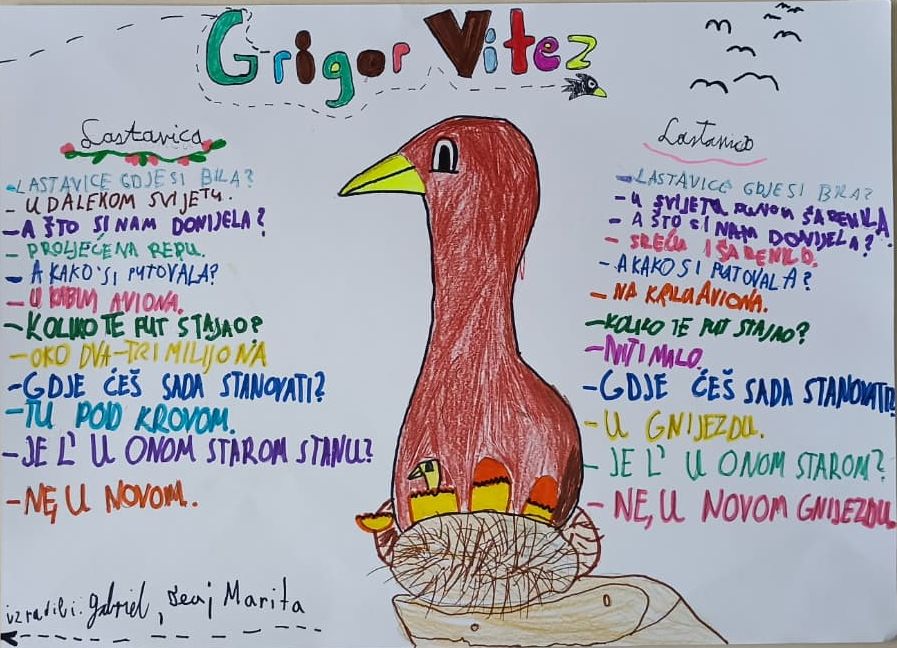 Grigor Vitez
Lastavica
- LASTAVICE GDJE SI BILA?
- U DALEKOM SVIJETU.
- A ŠTO SI NAM DONIJELA?
- PROLJEĆE NA REPU.
- A KAKO SI PUTOVALA?
- U KABINI AVIONA.
- KOLIKO TE PUT STAJAO?
- OKO DVA-TRI MILIJONA
- GDJE ĆEŠ SADA STANOVATI?
- TU POD KROVOM.
- JE L' U ONOM STAROM STANU?
- NE, U NOVOM.
izradili: Gabriel, Marita
Lastavica
- LASTAVICE GDJE SI BILA?
- U SVIJETU PUNOM ŠARENILA
- A ŠTO SI NAM DONIJELA?
- SREĆU I ŠARENILO.
- A KAKO SI PUTOVALA?
- NA KRILU AVIONA.
- KOLIKO TE PUT STAJAO?
- NITI MALO.
- GDJE ĆEŠ SADA STANOVATI?
- U GNIJEZDU.
- JE L' U ONOM STAROM?
- NE, U NOVOM GNIJEZDU.